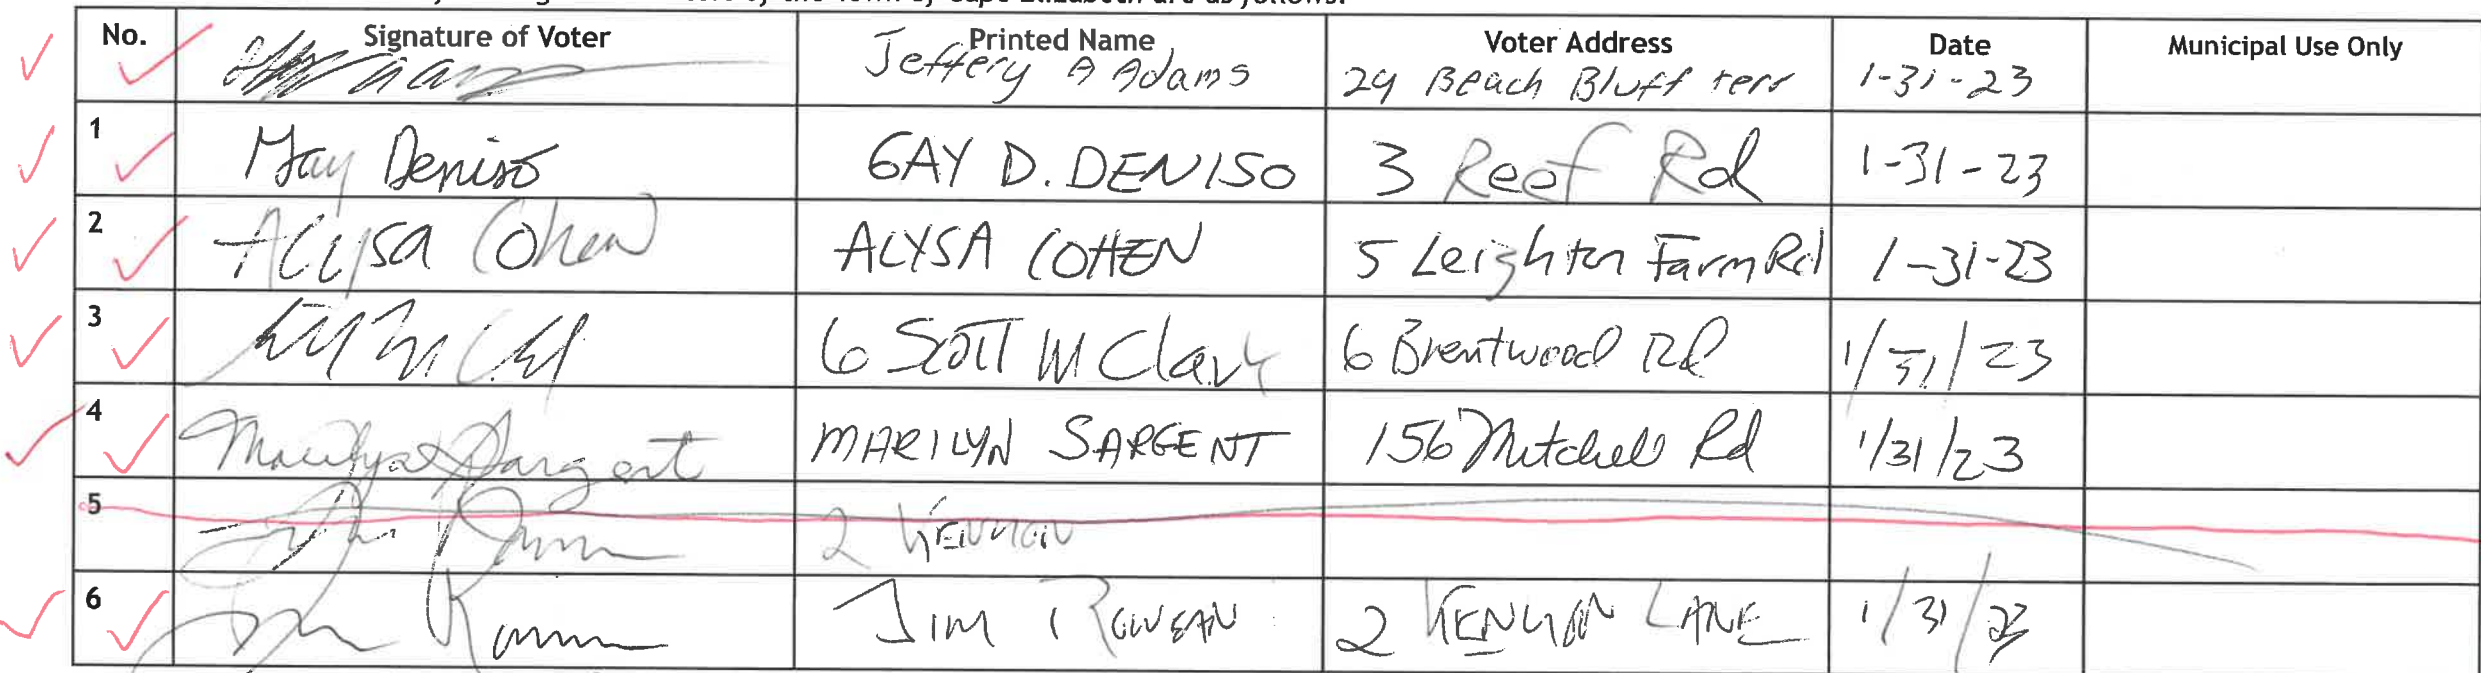 No. Signature of Voter Printed Name Voter Address Date Municipal Use Only
Jeffery A Adams 24 Beach Bluff terr 1-31-23
1 Gay Deniso GAY D. DENISO 3 Reef Rd 1-31-23
2 Alysa Cohen ALYSA COHEN 5 Leighton Farm Rd 1-31-23
3 6 Scott M Clark 6 Brentwood Rd 1/31/23
4 Marilyn Sargent MARILYN SARGENT 156 Mitchell Rd 1/31/23
5 2 KENYON
6 JIM ROWEAN 2 KENYON LANE 1/31/23